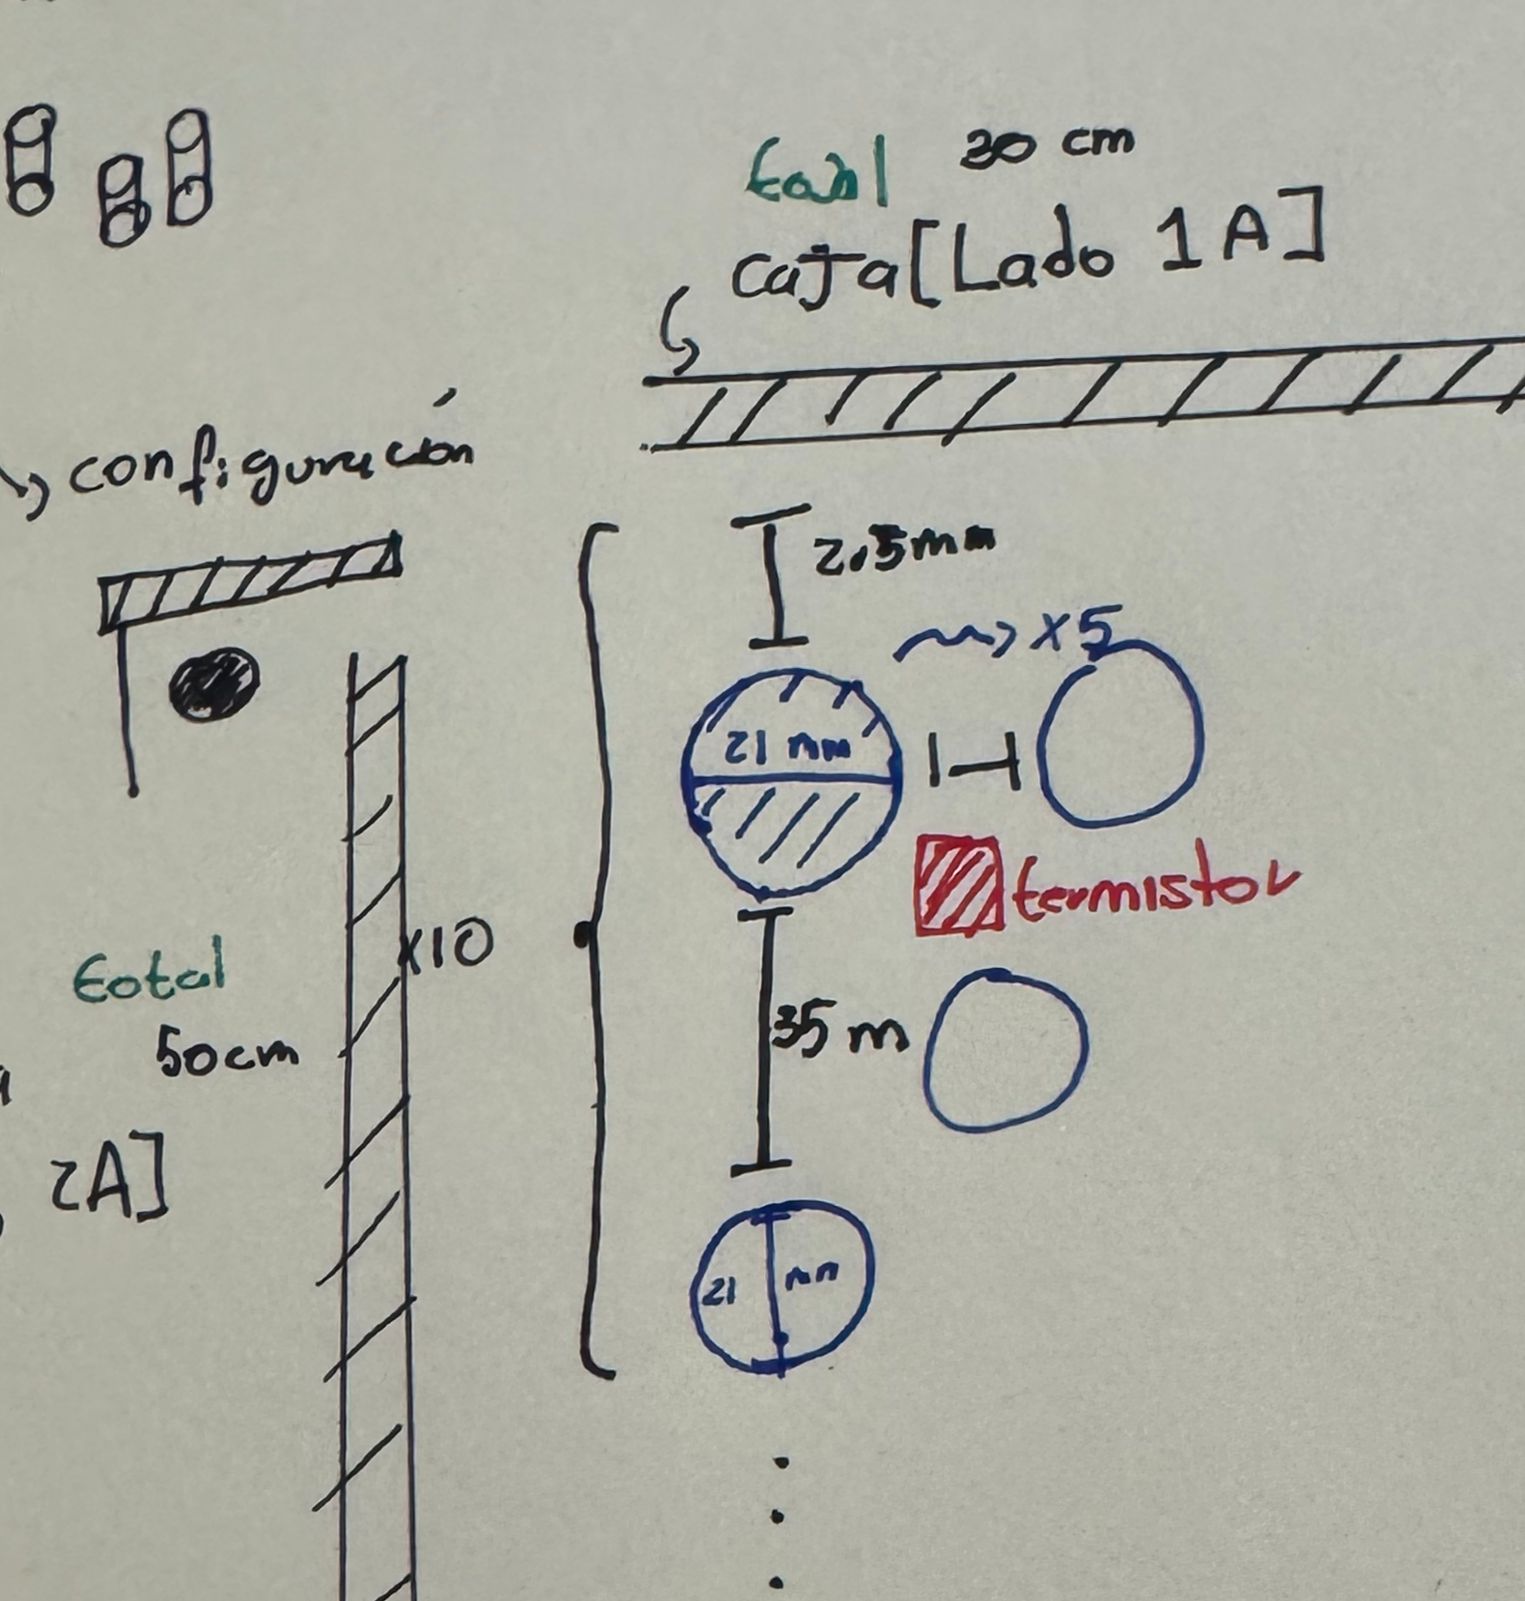 total 30 cm
caja [Lado 1A]
configuración
2.5mm
x5
21 mm
termistor
x10
total
50cm
35 m
2A]
21 mm